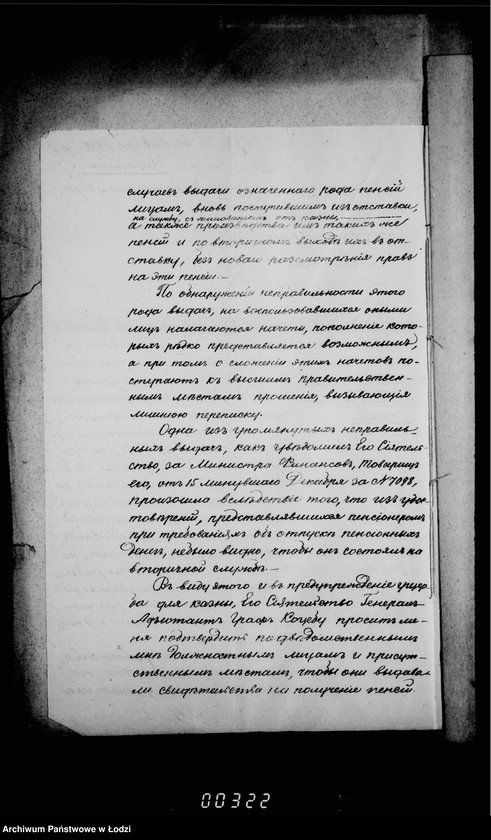 случаевъ выдачи означеннаго рода пенсій
лицамъ, вновь поступившимъ изъ отставки,
на службу, съ жалованьемъ отъ казны,
а также производства имъ такихъ же
пенсій и по вторичномъ выходѣ ихъ въ от-
ставку, безъ новаго разсмотрѣнія правъ
на эти пенсіи.—
По обнаруженіи неправильности этого
рода выдачъ, на воспользовавшихся оными
лицъ налагаются начеты, пополненіе кото-
рыхъ рѣдко представляется возможнымъ,
а при томъ о сложеніи этихъ начетовъ по-
ступаютъ къ высшимъ правительствен-
нымъ мѣстамъ прошенія, вызывающія
лишнюю переписку.
Одна изъ упомянутыхъ неправиль-
ныхъ выдачъ, какъ увѣдомилъ Его Сіятель-
ство, за Министра Финансовъ, Товарищъ
его, отъ 15 минувшаго Декабря за № 7098,
произошла вслѣдствіе того, что изъ удос-
товѣреній, представлявшихся пенсіонеромъ
при требованіяхъ объ отпускѣ пенсіонныхъ
денегъ, небыло видно, чтобы онъ состоялъ на
вторичной службѣ.—
Въ виду этого и въ предупрежденіе ущер-
ба для казны, Его Сіятельство Генералъ-
Адъютантъ Графъ Коцебу проситъ ме-
ня подтвердить подвѣдомственнымъ
мнѣ должностнымъ лицамъ и присут-
ственнымъ мѣстамъ, чтобы они выдава-
ли свидѣтельства на полученіе пенсій
00322
Archiwum Państwowe w Łodzi